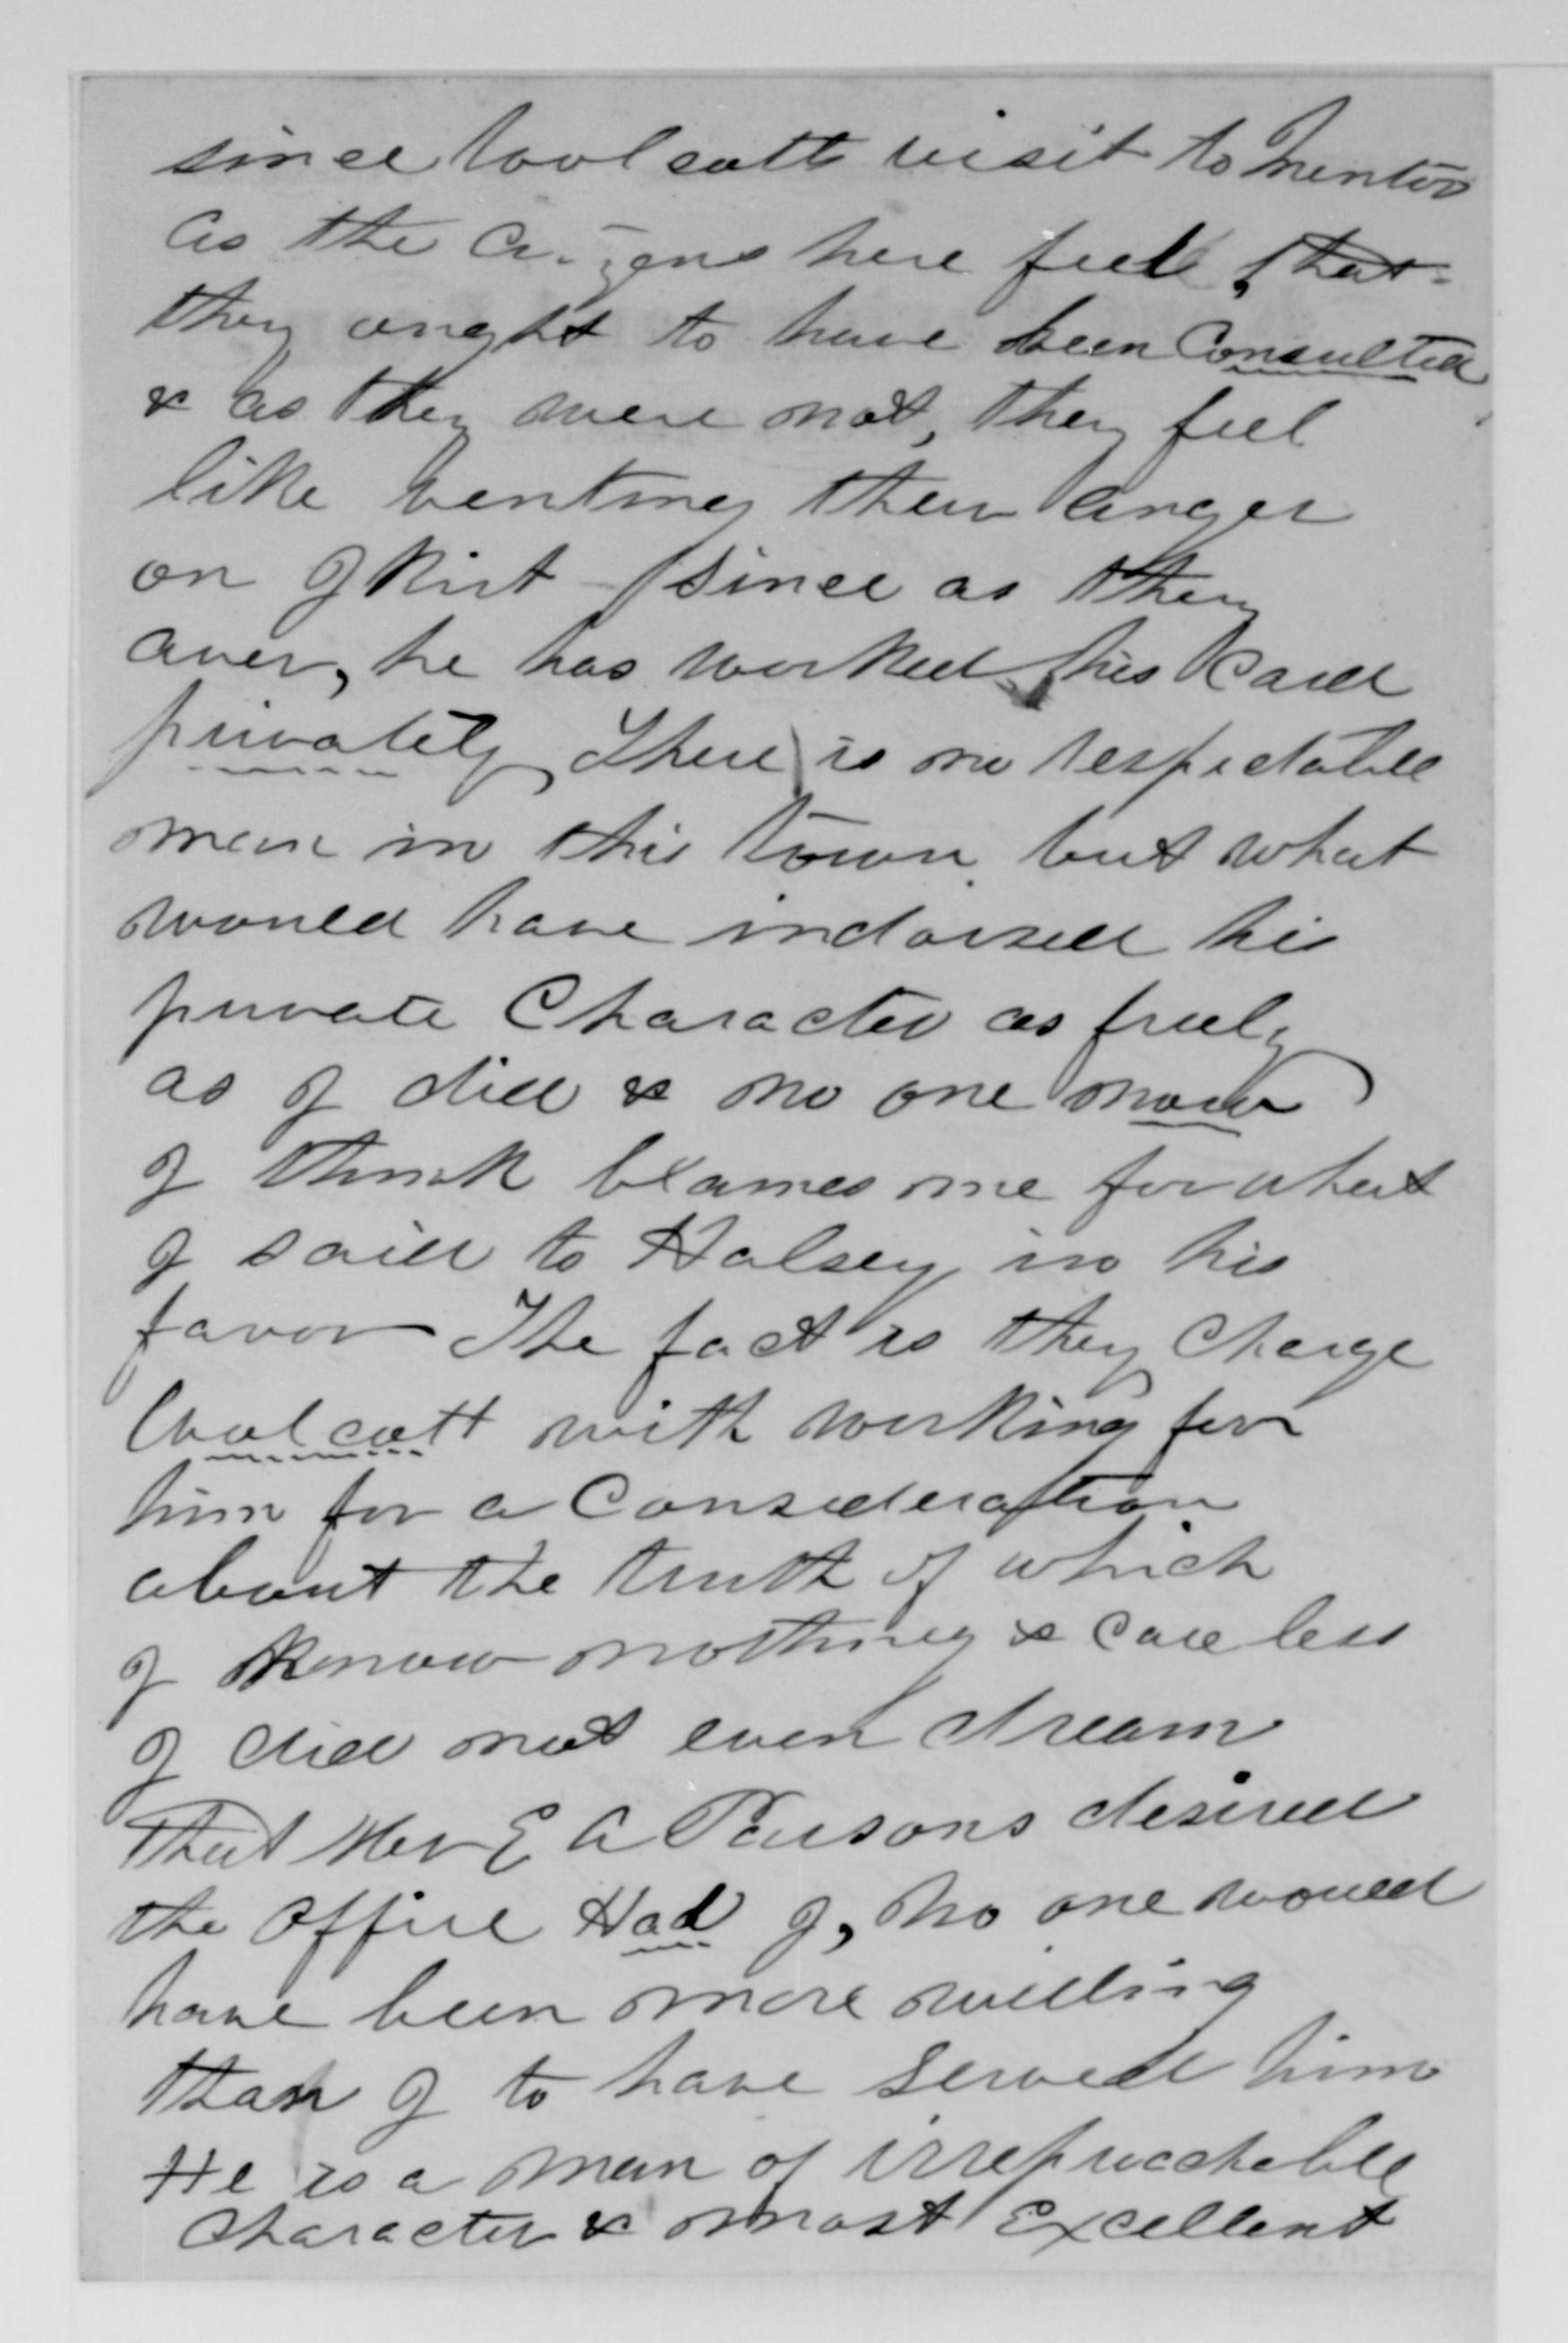 since Woolcotts visit to Mentor
as the Citizens here feel, that
they ought to have been Consulted
& as they were not, they feel
like venting their anger
on Kirt since as they
aver, he has worked his Card
privately, There is no respectable
man in this town but what
would have indorsed his
private Character as freely
as I did & no one now
I think blames me for what
I said to Halsey in his
favor The fact is they Charge
Woolcott with working for
him for a Consideration
about the truth of which
I know nothing & care less
I did not even dream
that Mr E A Parsons desired
the Office Had I, no one would
have been more willing
than I to have served him
He is a man of irreproachable
Character & most Excellent